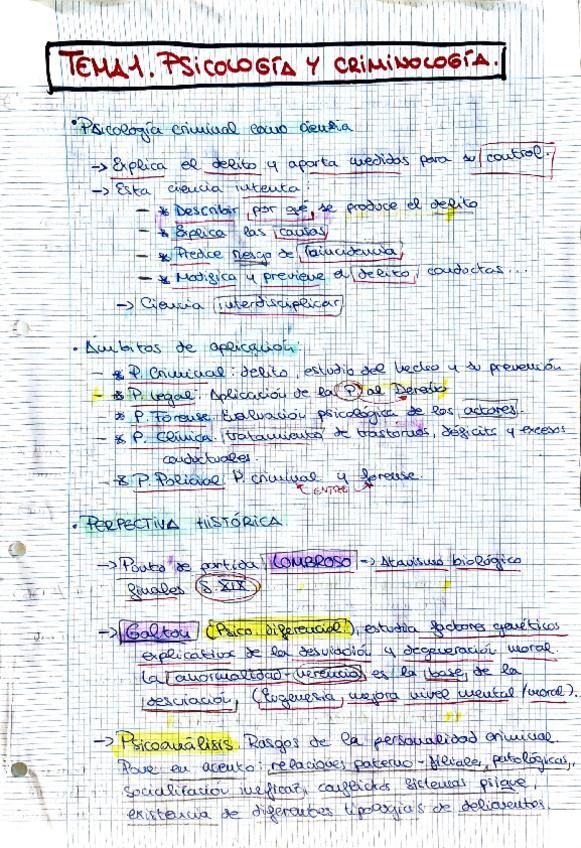 TEMA 1. PSICOLOGÍA Y CRIMINOLOGÍA.
• Psicología criminal como ciencia
→ Explica el delito y aporta medidas para su control.
→ Esta ciencia intenta:
- * Describir por qué se produce el delito
- * Explica las causas
- * Predice riesgo de reincidencia
- * Modifica y previene el delito, conductas...
→ Ciencia interdisciplicar
• Ámbitos de aplicación:
- * P. Criminal: delito, estudio del hecho y su prevención
- * P. Legal: Aplicación de la P al Derecho
- * P. Forense. Evaluación psicológica de los actores.
- * P. Clínica. tratamiento de trastornos, déficits y excesos
conductuales.
- * P. Policial P. criminal y forense.
ENTRE
• PERPECTIVA HISTÓRICA
→ Punto de partida LOMBROSO → Atavismo biológico
finales S. XIX
→ Galton (Psico. diferencial), estudia factores genéticos
explicativos de la desviación y degeneración moral.
la anormalidad - herencia es la base de la
desviación, (Eugenesia, mejora nivel mental/moral).
→ Psicoanálisis. Rasgos de la personalidad criminal.
Pone en acento: relaciones paterno-filiales, patológicas,
socialización ineficaz, conflictos sistemas psique,
existencia de diferentes tipologías de delincuentes.